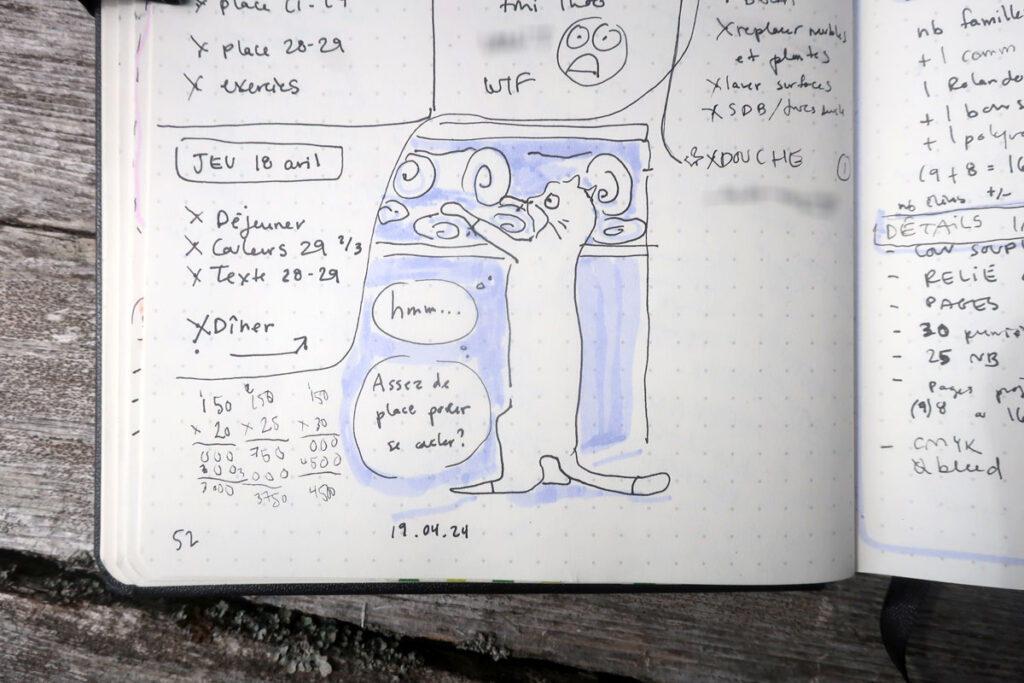 X place
X place 28-29
X exercices
WTF
X replacer meubles
et plantes
X laver surfaces
X SDB /
X DOUCHE
JEU 18 avril
X Déjeuner
X Couleurs 29 2/3
X Texte 28-29
X Dîner
hmm...
Assez de
place pour
se cacher?
150 150 150
x 20 x 25 x 30
000 750 000
3000 3000 4500
3000 3750 4500
52
19.04.24
nb famille
+ 1 comm
1 Rolando
+ 1
+ 1
(9+8 = 16
nb +/-
DÉTAILS
- COUV SOUPL
- RELIÉ
- PAGES
- 30
- 25 NB
- Pages
(9)8 a 16
- CMYK
& bleed